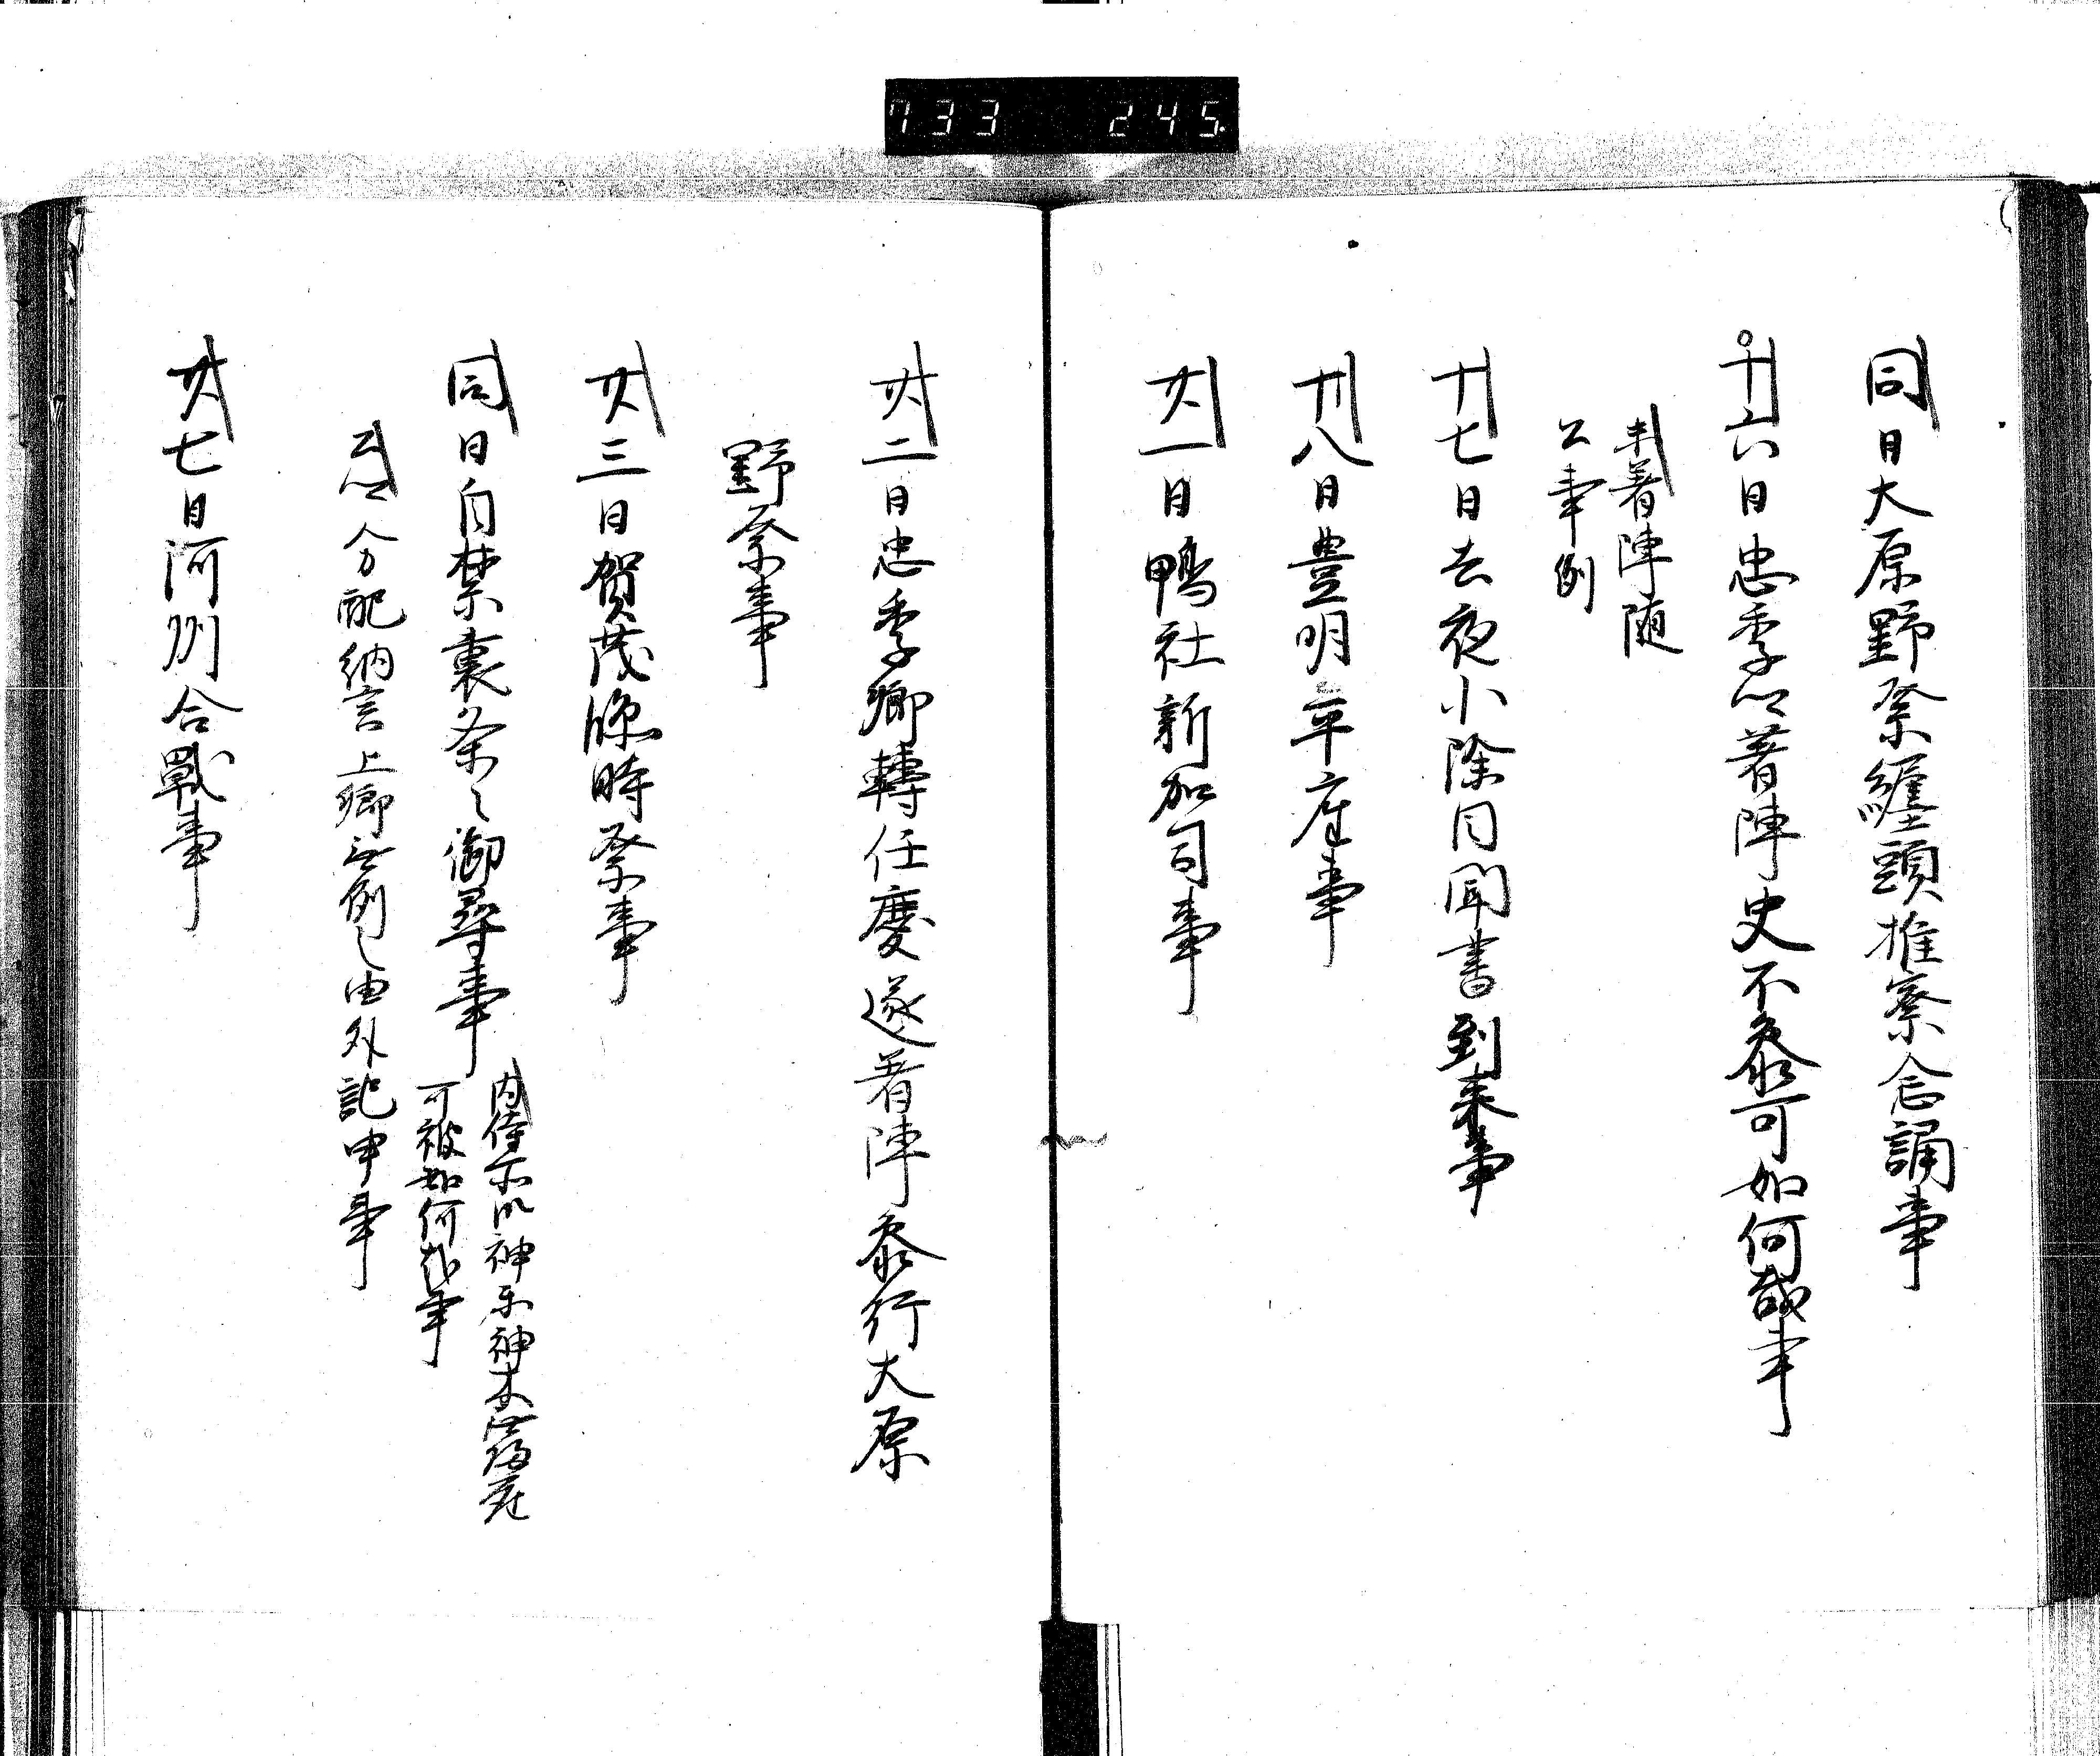 733 245
同日大原野祭纏頭推察念誦事
十六日忠季卿著陣史不参可如何哉事
未著陣随
公事例
十七日去夜小除目聞書到来事
十八日豊明平座事
廿一日鴨社新加司事
廿二日忠季卿轉任慶遂著陣参行大原
野祭事
廿三日賀茂臨時祭事
同日自禁裏条々御尋事
内侍所御神楽神木
可被如何哉事
分配納言上卿無例之由外記申事
廿七日河州合戦事